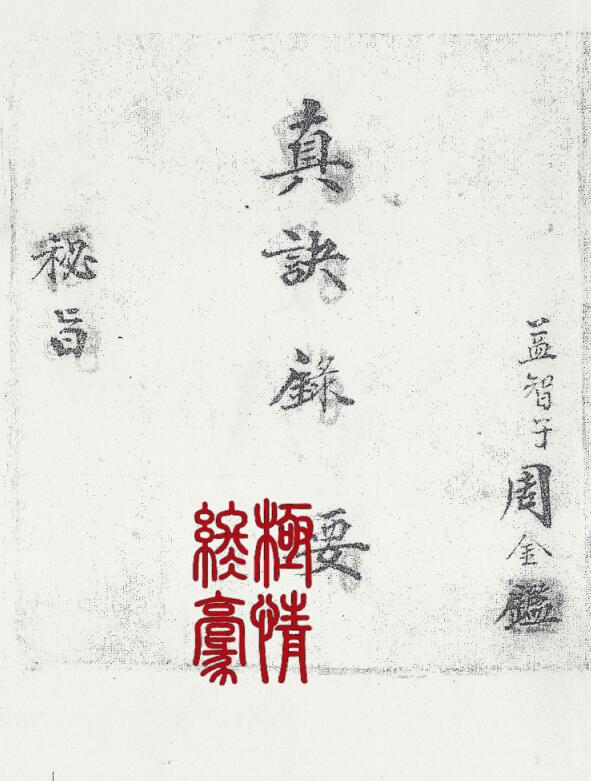 益智子周金鑑
真訣錄要
秘旨
極情
豪